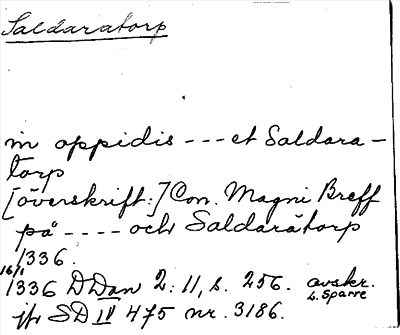 Saldaratorp
in oppidis --- et Saldara-
torp
[överskrift:] Con. Magni Breff
på ---- och Saldaråtorp
1336.
16/1 1336 DDan 2:11, s. 256. avskr. L. Sparre
jfr SD IV 475 nr. 3186.